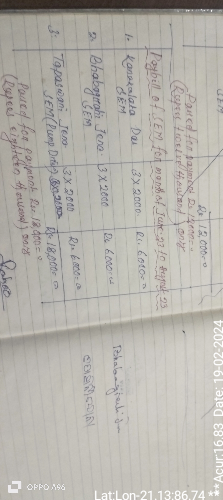 SEM
Rs 12,000=0
Passed for payment Rs 12000=0
(Rupees twelve thousand) only
Paybill of SEM for month of June 23 to August 23
1. Kanakalata Dai 3 X 2000 Rs 6000=0
SEM
2. Bhabagrahi Jena 3 X 2000 Rs 6000=0
SEM
3. Tapaswini Jena 3 X 2000 Rs 6000=0
SEM (Pump Driv)
Rs 18,000=0
Passed for payment Rs 18,000=0
(Rupees eighteen thousand) only
OPPO A96
LatLon-21.13:86.74
cur16.83 Date.19-02-2024